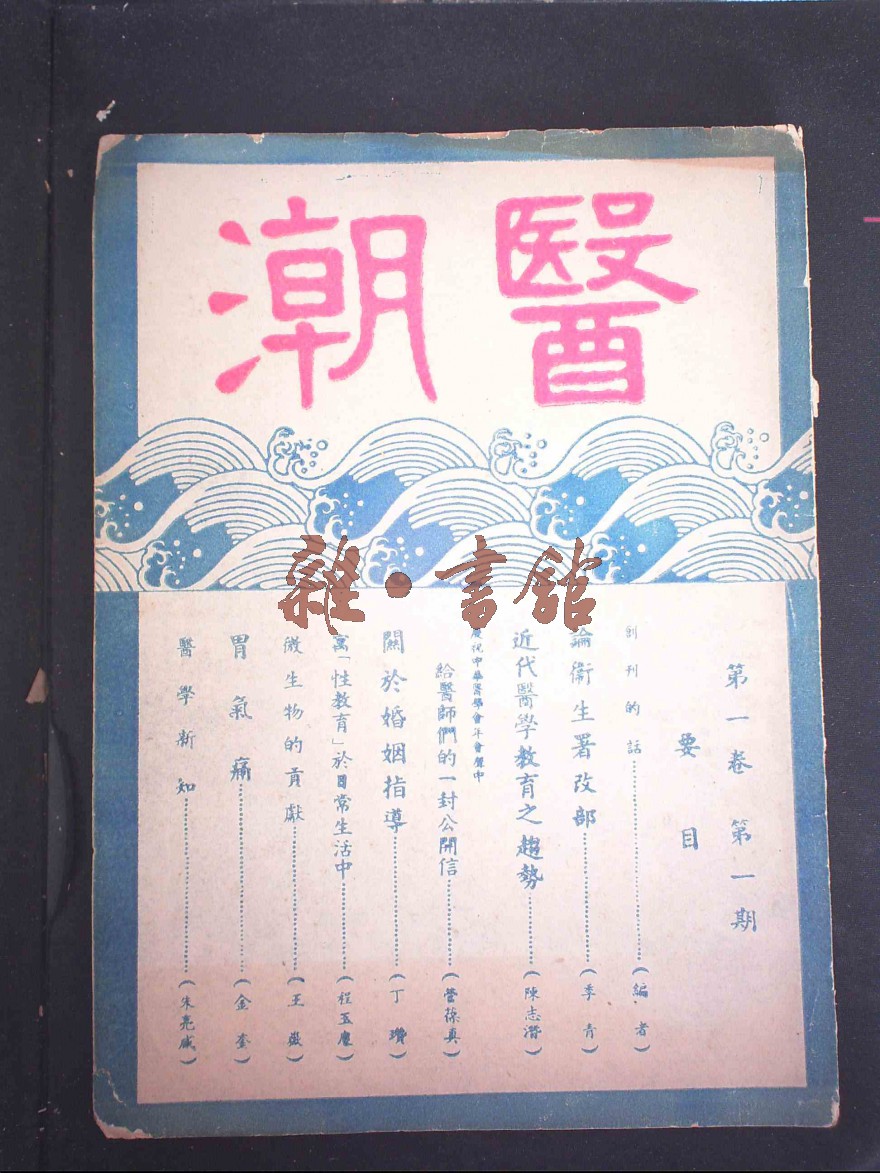 醫潮
雜·書館
第一卷 第一期
要目
創刊的話………(編者)
論衞生署改部………(季青)
近代醫學教育之趨勢………(陳志潛)
慶祝中華醫學會年會聲中
給醫師們的一封公開信………(營葆真)
關於婚姻指導………(丁瓚)
寓「性教育」於日常生活中………(程玉麐)
微生物的貢獻………(王嶽)
胃氣痛………(金奎)
醫學新知………(朱亮威)